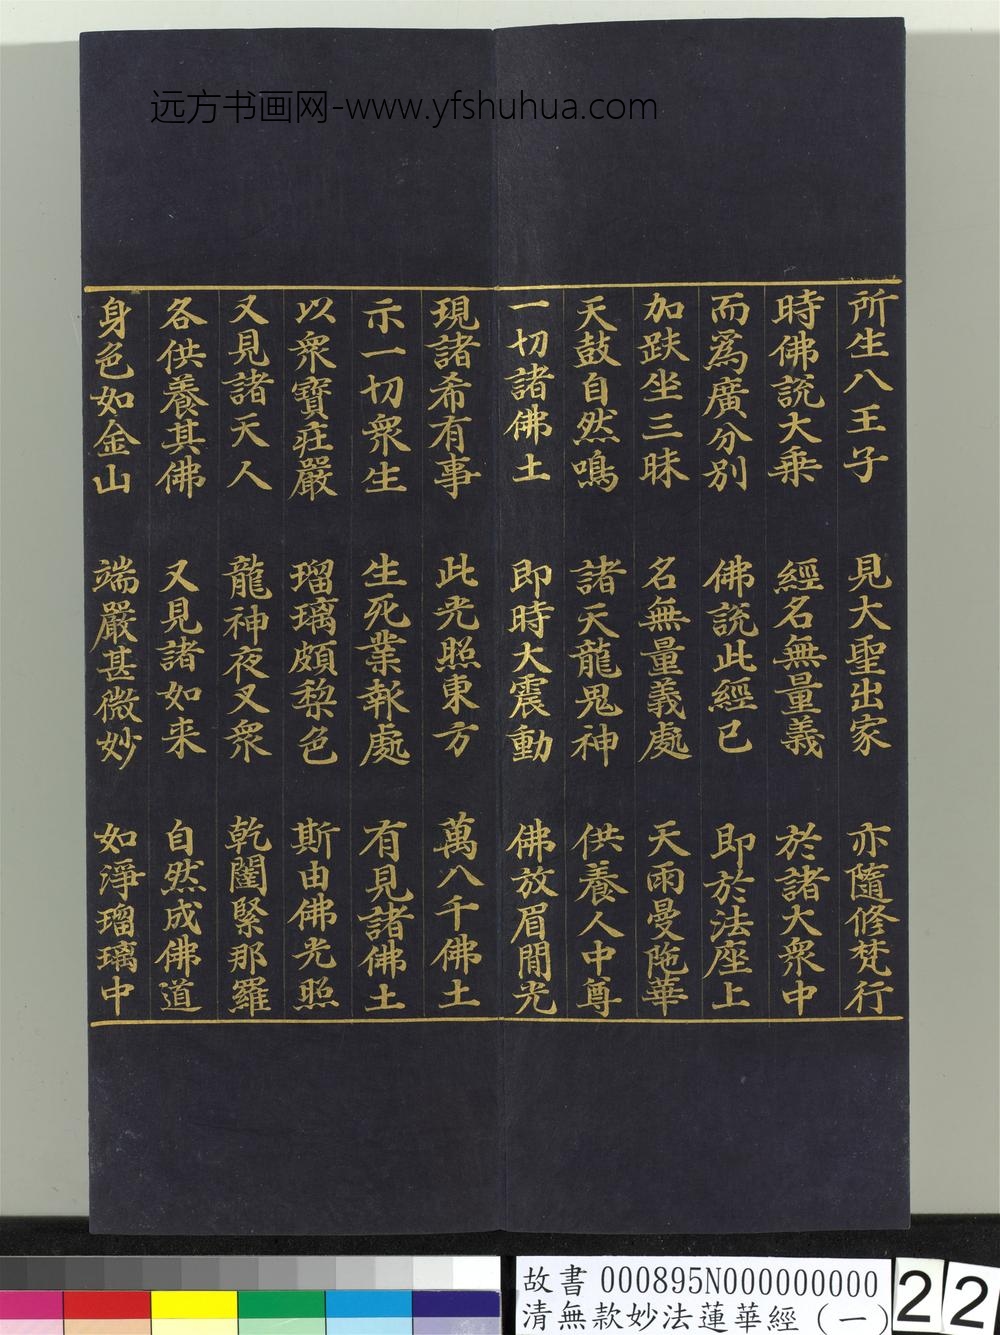 远方书画网-www.yfshuhua.com
所生八王子 見大聖出家 亦隨修梵行
時佛說大乘 經名無量義 於諸大衆中
而爲廣分別 佛說此經已 即於法座上
加趺坐三昧 名無量義處 天雨曼陁華
天鼓自然鳴 諸天龍鬼神 供養人中尊
一切諸佛土 即時大震動 佛放眉間光
現諸希有事 此光照東方 萬八千佛土
示一切衆生 生死業報處 有見諸佛土
以衆寶莊嚴 瑠璃頗梨色 斯由佛光照
又見諸天人 龍神夜叉衆 乾闥緊那羅
各供養其佛 又見諸如来 自然成佛道
身色如金山 端嚴甚微妙 如淨瑠璃中
故書 000895N000000000
清無款妙法蓮華經(一)
22